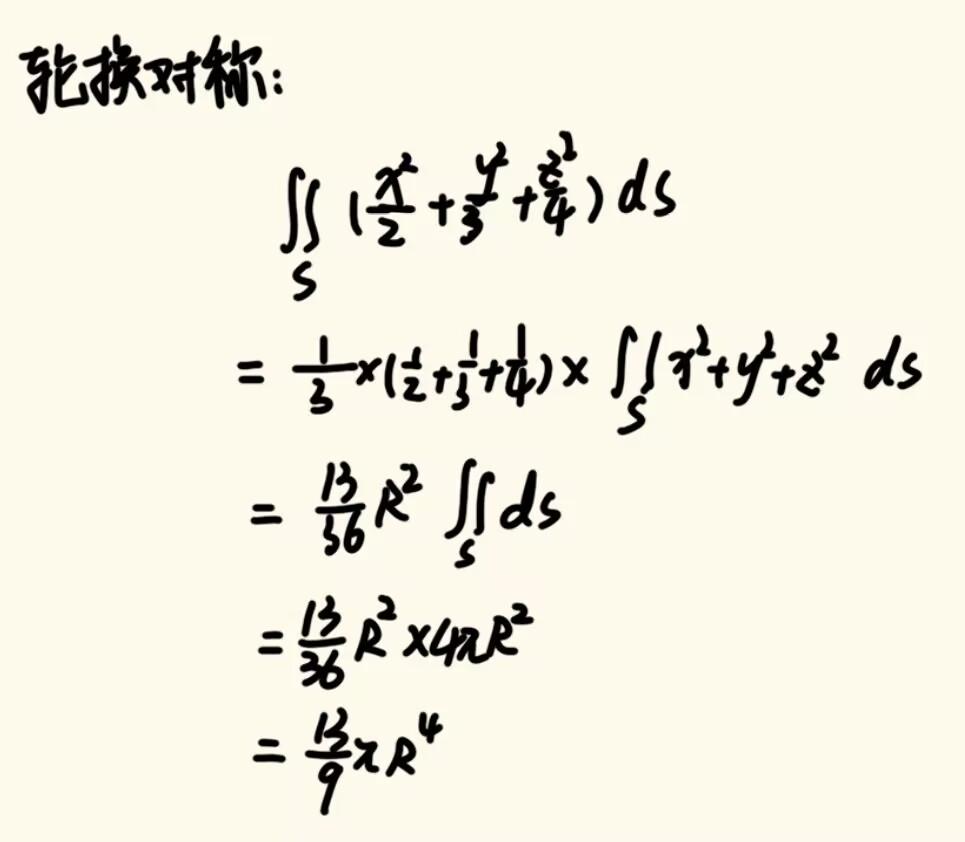 轮换对称:
∬_S (x²/2 + y²/3 + z²/4) ds
= 1/3 × (1/2 + 1/3 + 1/4) × ∬_S x² + y² + z² ds
= 13/36 R² ∬_S ds
= 13/36 R² × 4πR²
= 13/9 πR⁴